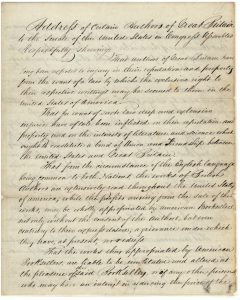 Address of Certain Authors of Great Britain
to the Senate of the United States in Congress Assembled
Respectfully sheweth
That Authors of Great Britain have
long been exposed to injury in their reputation and property
from the want of a law by which the exclusive right to
their respective writings may be secured to them in the
United States of America.
That for want of such law deep and extensive
injuries have of late been inflicted on the reputation and
property and on the interests of literature and science which
ought to constitute a bond of Union and Friendship between
the United States and Great Britain.
That from the circumstance of the English language
being common to both Nations the works of British
Authors are extensively read throughout the United States
of America, while the profits arising from the sale of their
works, may be wholly appropriated by American Booksellers
not only without the consent of the Authors, but even
contrary to their express desire, a grievance under which
they have, at present, no redress
That the works thus appropriated by American
Booksellers are liable to be mutilated and altered at
the pleasure of said Booksellers, or of any other persons
who may have an interest in reducing the price of the